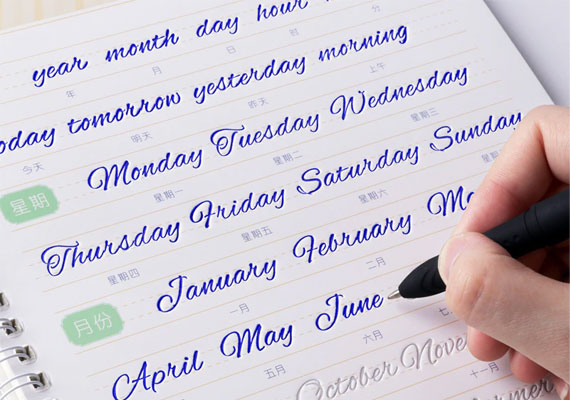 year month day hour
年 月 日 时
today tomorrow yesterday morning
今天 明天 昨天 上午
星期 Monday Tuesday Wednesday
星期一 星期二 星期三
Thursday Friday Saturday Sunday
星期四 星期五 星期六
月份 January February
一月 二月
April May June
五月 六月 七
October
十一月